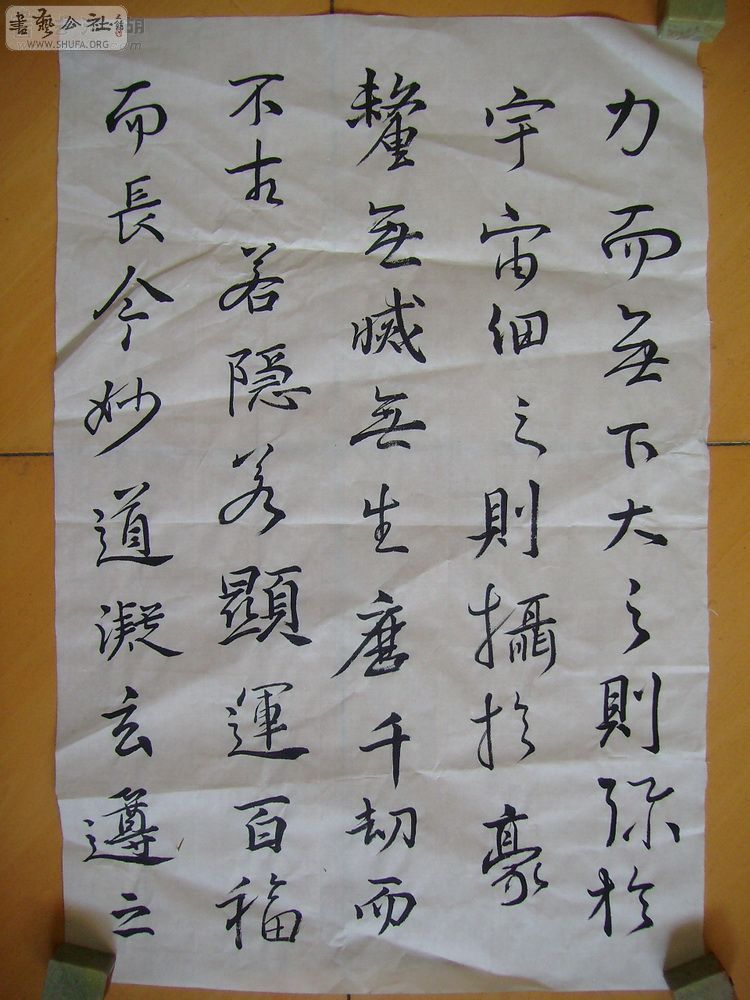 書藝公社
WWW.SHUFA.ORG
力而無下大之則弥於
宇宙細之則攝於豪
釐無滅無生歷千劫而
不古若隱若顯運百福
而長今妙道凝玄遵之